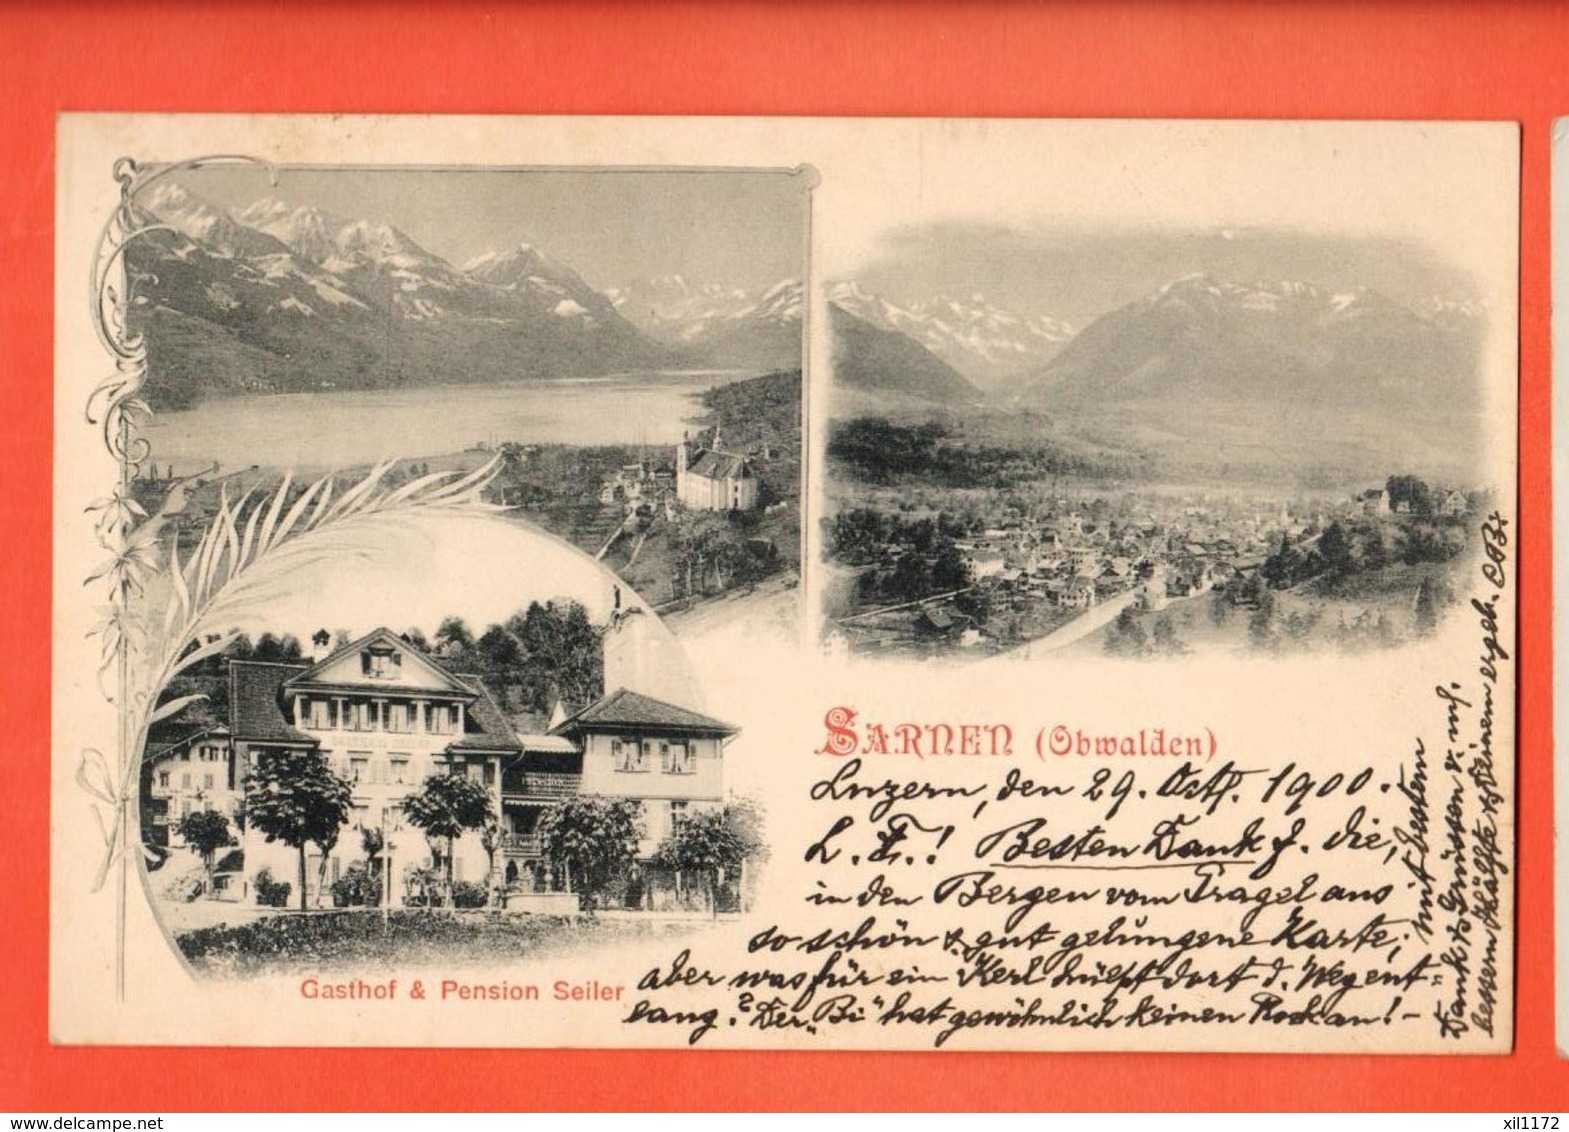 SARNEN (Obwalden)
Luzern, den 29. Okt. 1900.
L. F.! Besten Dank f. die,
in den Bergen vom Pragel aus
so schön & gut gelungene Karte;
aber was für ein Kerl hülpt dort d. Weg ent-
lang? Der „Bi“ hat gewöhnlich keinen Rock an! –
mit besten
Dank & Grüssen v. m.
bessern Hälfte & Deinem ergeb. CBi
Gasthof & Pension Seiler
www.delcampe.net
xil1172